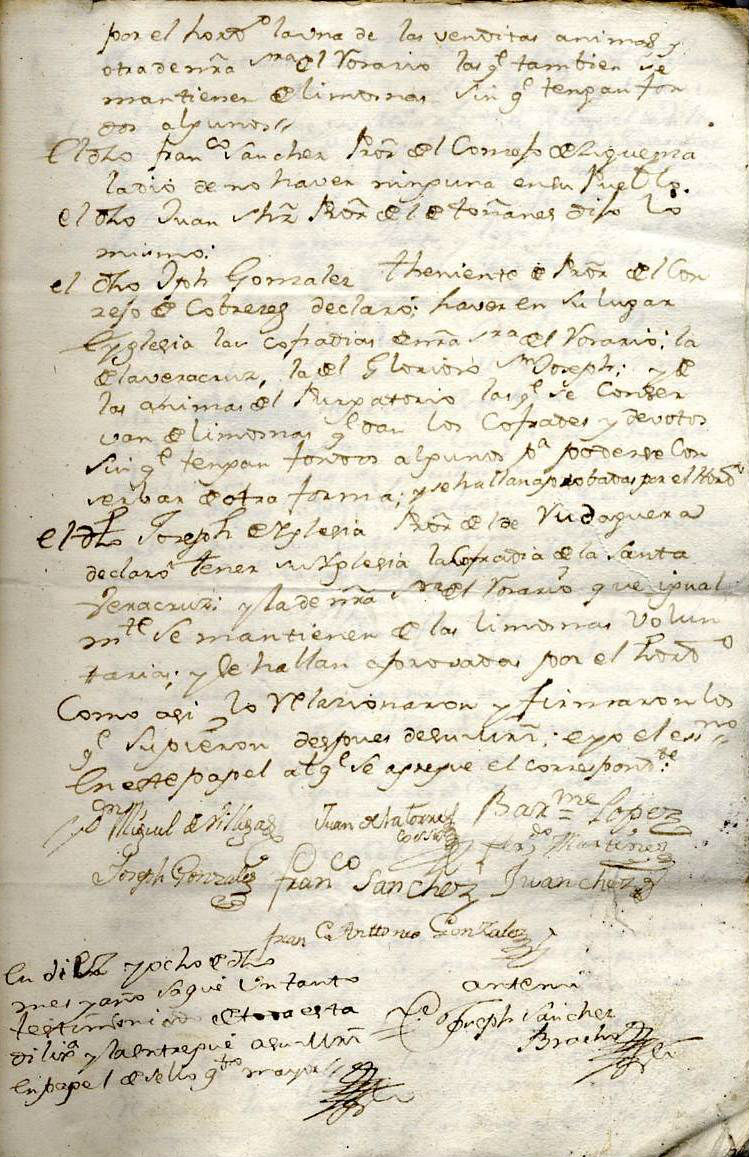 por el hordº la una de las venditas animas y
otra de nrã sra del Rosario las ql tambien se
mantienen de limosnas sin ql tengan fon
dos algunos
El dho franco Sanchez Rror del Consejo de Ziguenza
la dió de no haver ninguna en su Pueblo
el dho Juan Shz Rror del de toñanes dijo lo
mismo:
el dho Jph Gonzalez theniente de Rror del Con
zejo de Cobrezes declaró; haver en su lugar
e Yglesia las cofradias de nrã sra del Rosario; la
de la veracruz, la del Glorioso Sn Joseph; y de
las animas del Purgatorio las ql se Conser
van de limosnas ql dan los Cofrades y devotos
sin ql tengan fondos algunos pa poderse Con
serbar de otra forma; y se hallan aprobadas por el Hordº
el dho Joseph de Yglesia Rror del de Rudaguera
declaró tener su Yglesia la Cofradia de la Santa
Veracruz; y la de nrã sra del Rosario que igual
mte se mantienen de las limosnas volun
tarias; y se hallan aprovadas por el hordº
Como asi lo Relazionaron y firmaron los
ql supieron despues de su Mrd; e yo el essno
En este papel a tl ql se agregue el correspondte
Miguel de Villegas Juan de la Torre Barme Lopez
Cossio Martinez
Joseph Gonzalez franco Sanchez Juan Shez
Franco Anttonio Gonzalez
En diez y ocho de dho
mes y año saqué Un tanto
testimoniado de toda esta
diliza y la entregué a su Mrd
En papel de sello qto mayor
antemi
Joseph Sanchez
Bracho